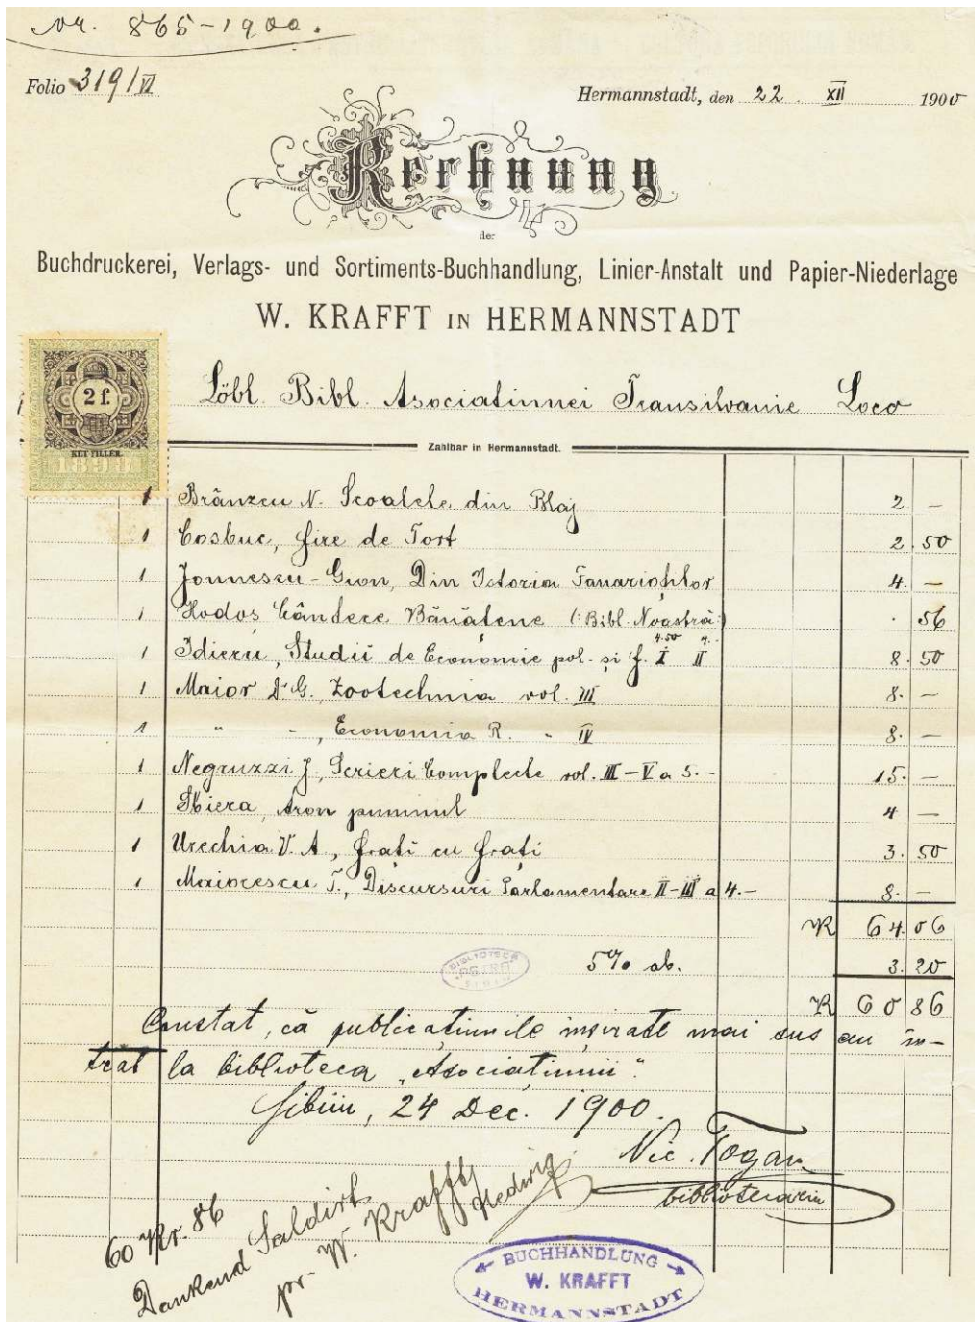 Nr. 865-1900.
Folio 319/VI
Hermannstadt, den 22. XII 1900
Rechnung
der
Buchdruckerei, Verlags- und Sortiments-Buchhandlung, Linier-Anstalt und Papier-Niederlage
W. KRAFFT IN HERMANNSTADT
2 f.
KÉT FILLÉR.
1898
Löbl. Bibl. Asociatiunei Transilvanie Loco
Zahlbar in Hermannstadt.
1 Brânzeu N. Scoalele din Blaj 2 –
1 Cosbuc, Fire de Tort 2.50
1 Jonnescu-Gion, Din Istoria Fanarioților 4. –
1 Hodoș Cântece Bănățene (:Bibl. Noastră:) . 56
1 Idieru, Studii de Economie pol. și f. I II 8.50
4.50 4.
1 Maior D. G. Zootechnia vol. III 8. –
1 " " , Economia R. " IV 8. –
1 Negruzzi J., Scrieri Complecte vol. III–V a 5.– 15. –
1 Sbiera, Aron pumnul 4 –
1 Urechia V. A., Frați cu Frați 3.50
1 Maiorescu T., Discursuri Parlamentare II–III a 4.– 8. –
K 64.06
5% ab. 3.20
K 60 86
BIBLIOTECA
ASTRA
SIBIU
Constat, că publicațiunile înșirate mai sus au in-
trat la biblioteca „Asociațiunii".
Sibiiu, 24 Dec. 1900.
Nic. Togan
bibliotecariu
60 Kr. 86
Dankend Saldirt
pr. W. Krafft
Hedwig
BUCHHANDLUNG
W. KRAFFT
HERMANNSTADT